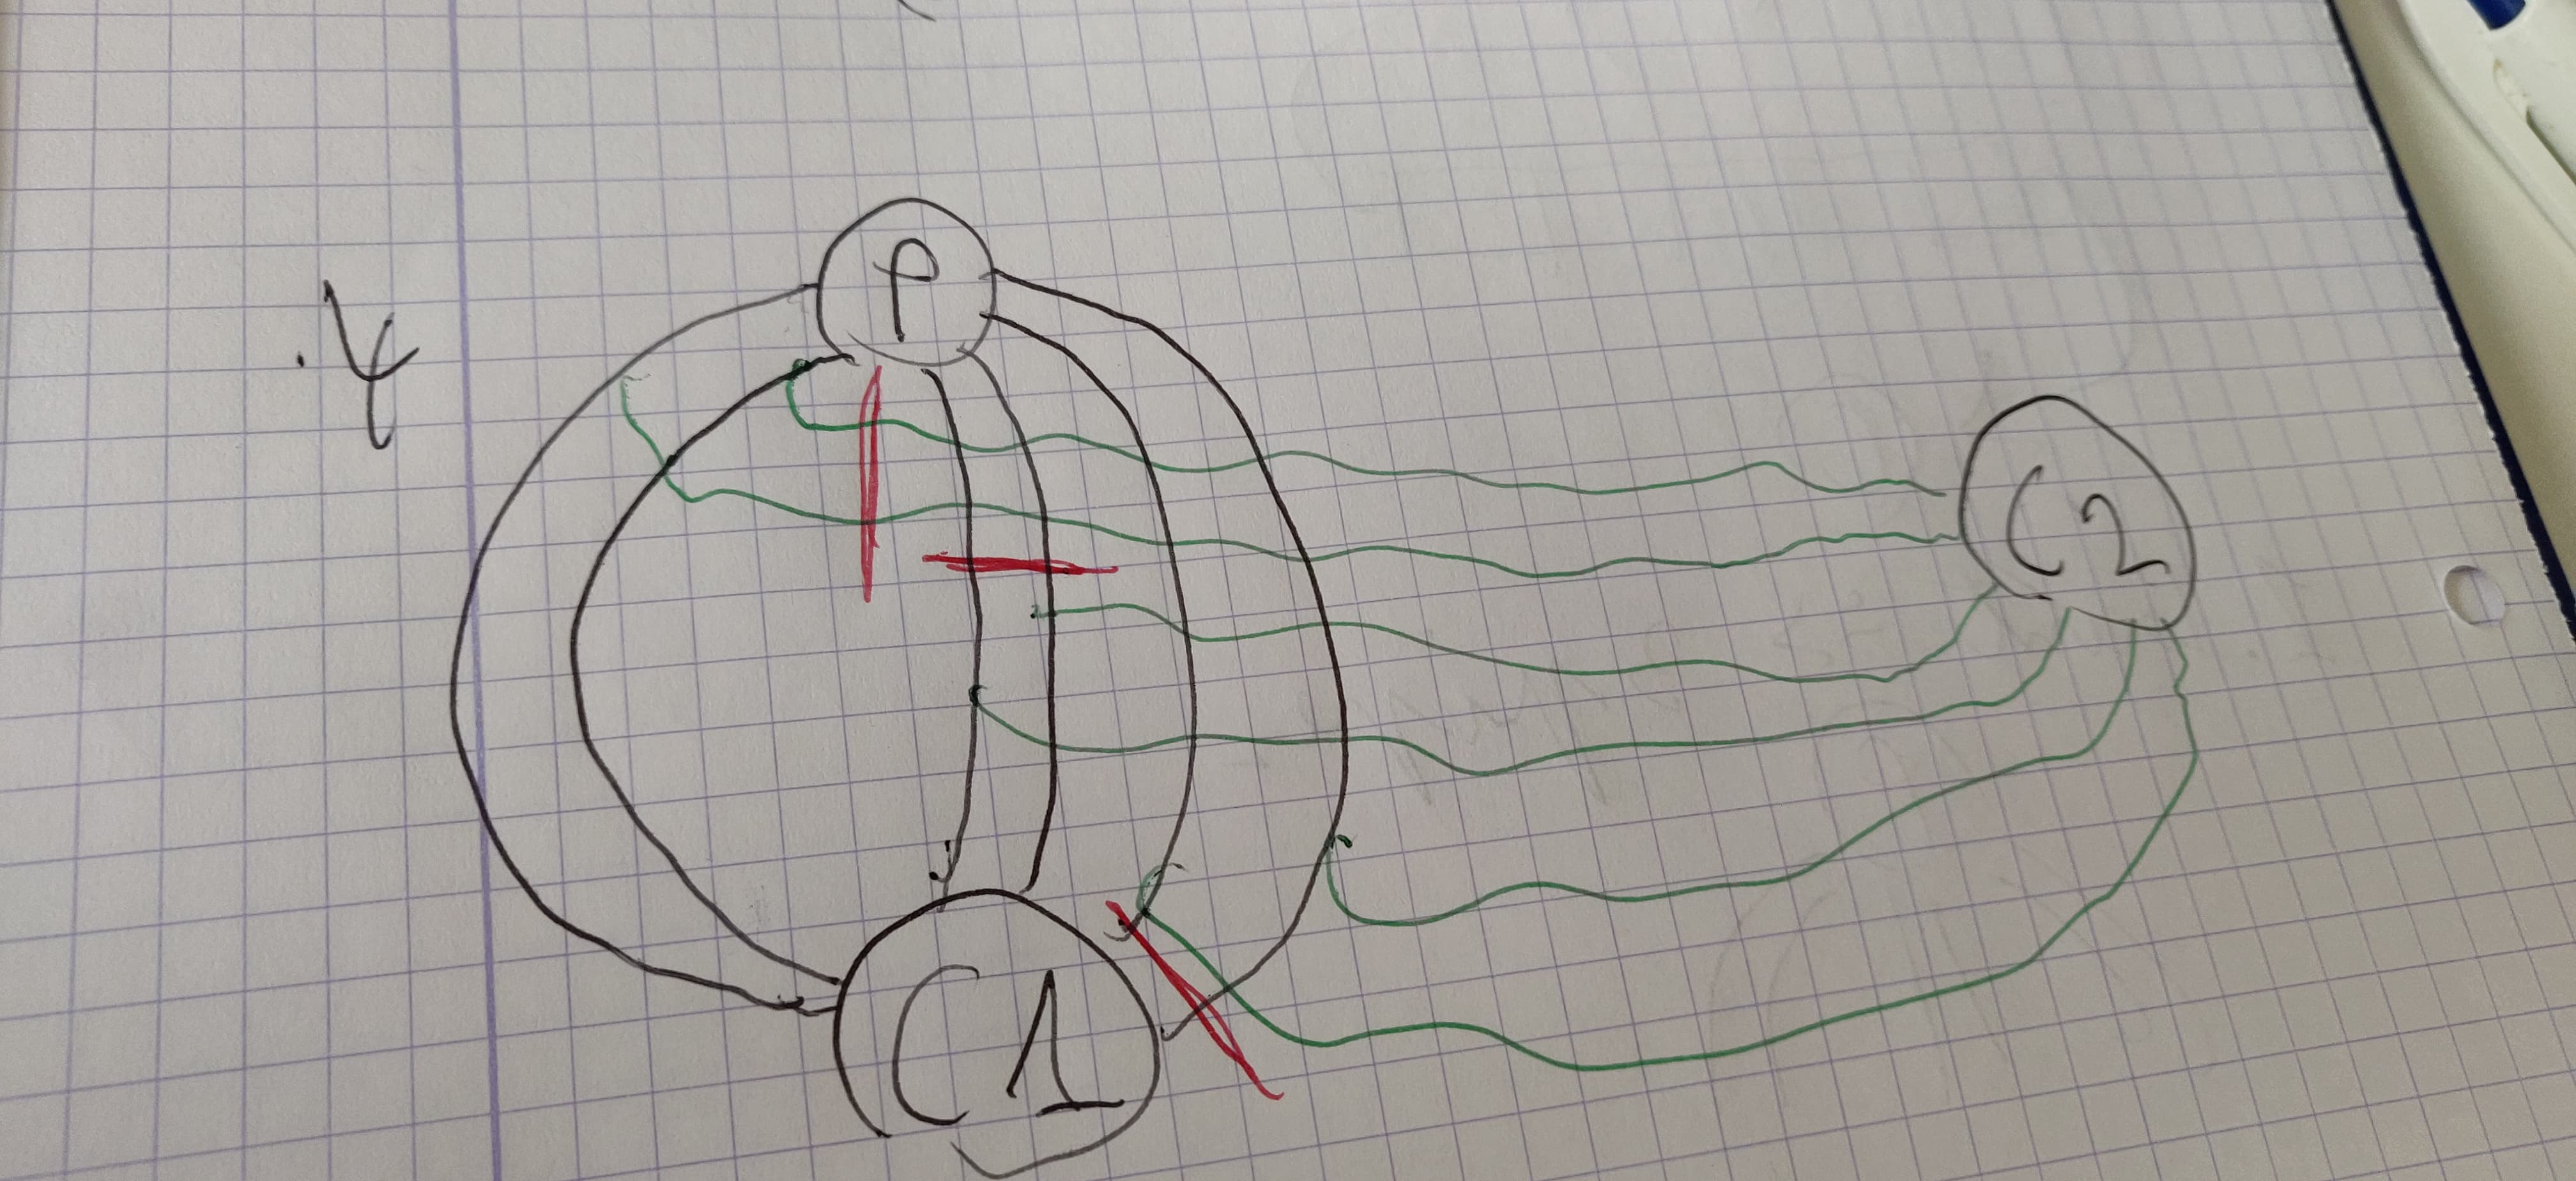 P
C2
C1